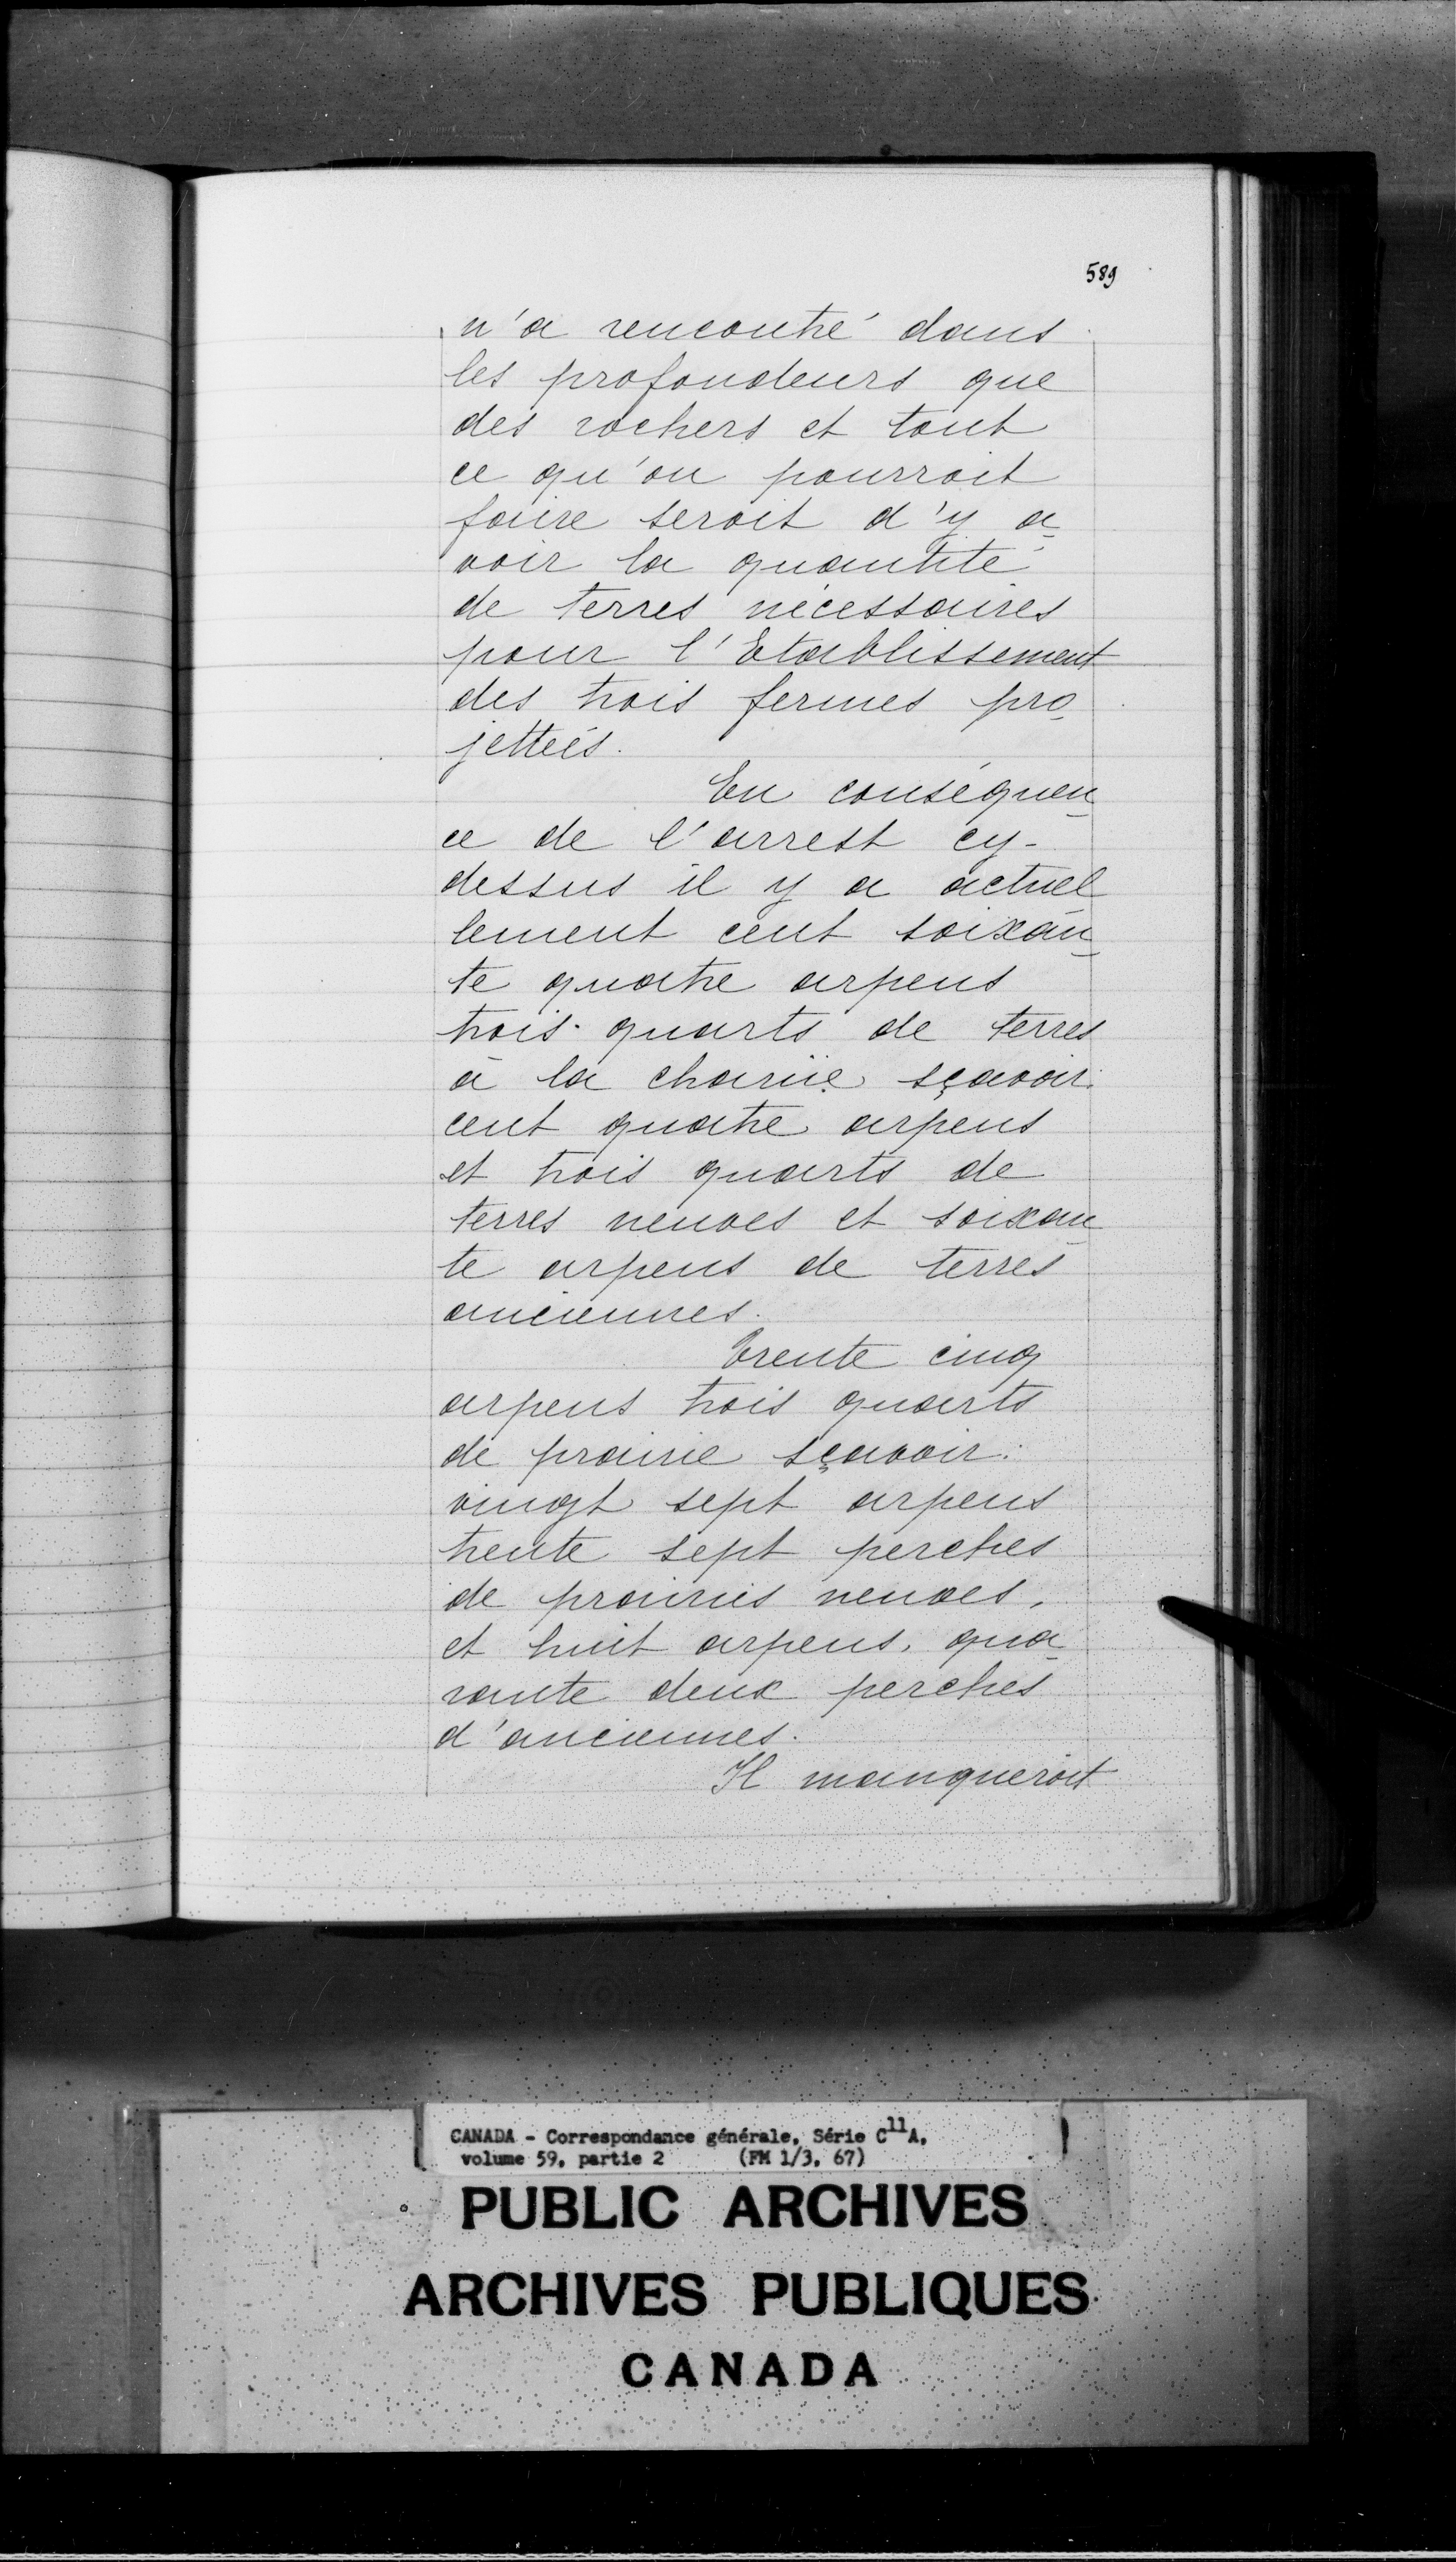 589
n'a rencontré dans
les profondeurs que
des rochers et tout
ce qu'on pourroit
faire seroit d'y a-
voir la quantité
de terres nécessaires
pour l'Etablissement
des trois fermes pro-
jettées.
En conséquen-
ce de l'arrest cy-
dessus il y a actuel
lement cent soixan-
te quatre arpens
trois quarts de terres
à la charüe sçavoir:
cent quatre arpens
et trois quarts de
terres neuves et soixan-
te arpens de terres
anciennes.
Trente cinq
arpens trois quarts
de prairie sçavoir:
vingt sept arpens
trente sept perches
de prairies neuves,
et huit arpens, qua-
rante deux perches
d'anciennes.
Il manqueroit
CANADA - Correspondance générale, Série C11A,
volume 59, partie 2 (FM 1/3, 67)
PUBLIC ARCHIVES
ARCHIVES PUBLIQUES
CANADA